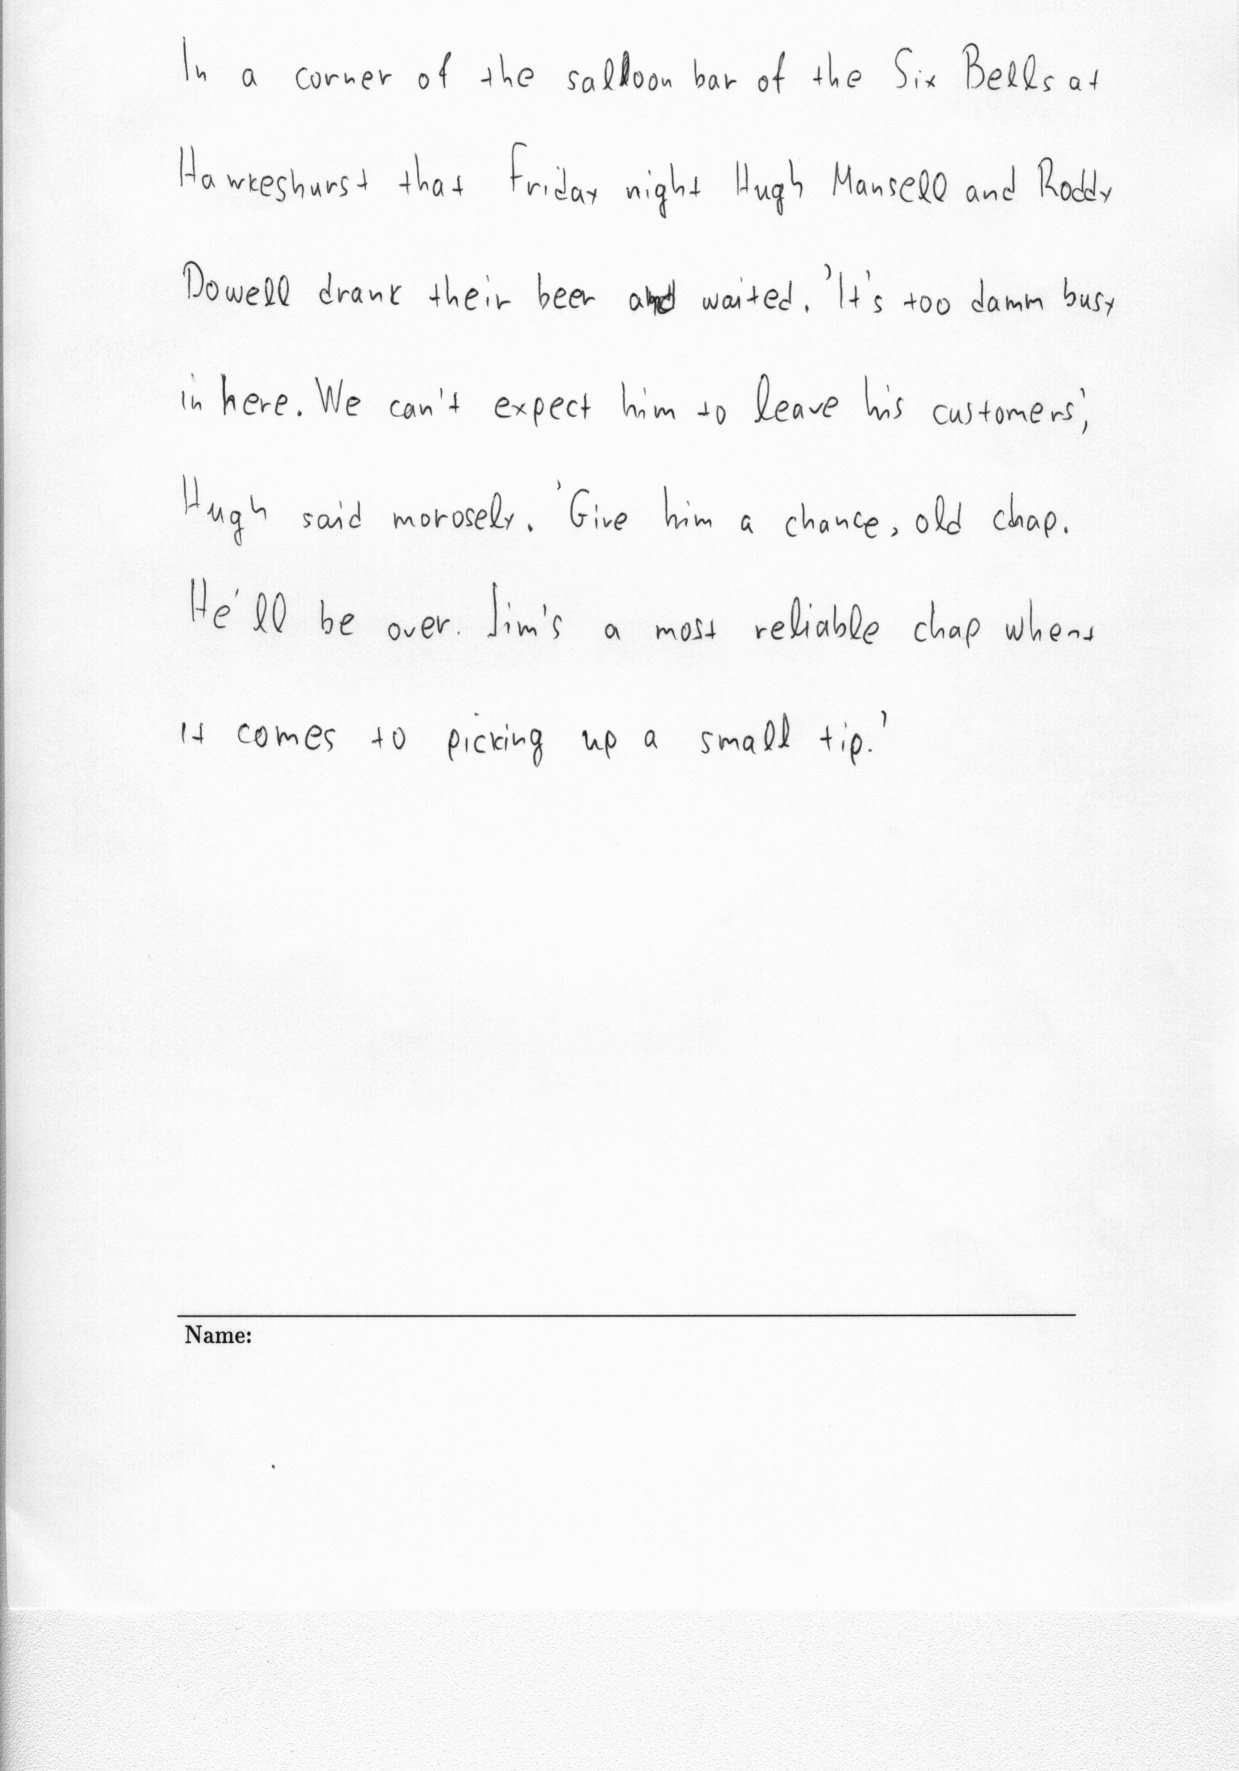 In a corner of the salloon bar of the Six Bells at
Hawkeshurst that Friday night Hugh Mansell and Roddy
Dowell drank their beer and waited. 'It's too damm busy
in here. We can't expect him to leave his customers,'
Hugh said morosely. 'Give him a chance, old chap.
He'll be over. Jim's a most reliable chap when
it comes to picking up a small tip.'
Name: